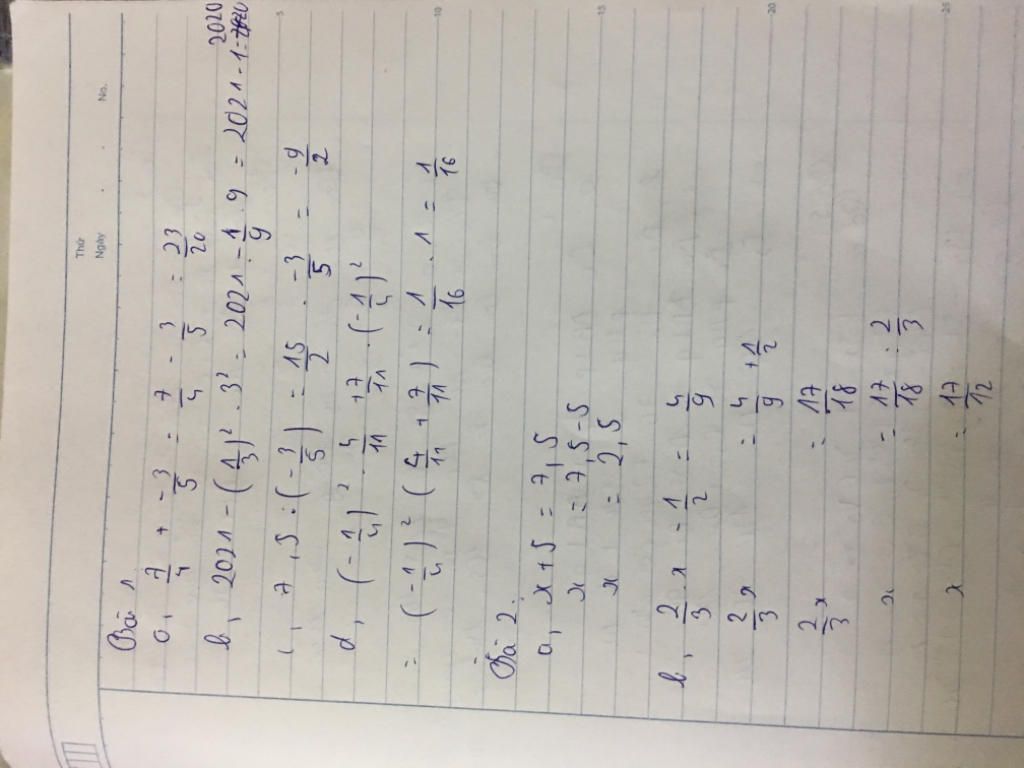 Thứ
Ngày . . No.
Bài 1
a, 7/4 + -3/5 = 7/4 - 3/5 = 23/20
b, 2021 - (1/3)² . 3² = 2021 - 1/9 . 9 = 2021 - 1 = 2020
c, 7,5 : (-3/5) = 15/2 . -3/5 = -9/2
d, (-1/4)² . 4/11 + 7/11 . (-1/4)²
= (-1/4)² (4/11 + 7/11) = 1/16 . 1 = 1/16
Bài 2.
a, x + 5 = 7,5
x = 7,5 - 5
x = 2,5
b, 2/3 x - 1/2 = 4/9
2/3 x = 4/9 + 1/2
2/3 x = 17/18
x = 17/18 : 2/3
x = 17/12
5
10
15
20
25